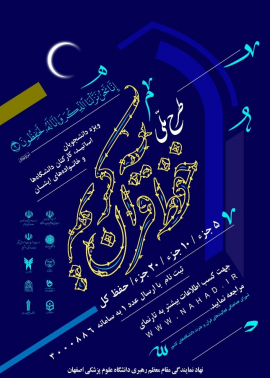 إنا نحن نزلنا الذکر و إنا له لحافظون
طرح ملی
حفظ قرآن کریم
ویژه دانشجویان
اساتید، کارکنان دانشگاه‌ها
و خانواده‌های ایشان
۵ جزء / ۱۰ جزء / ۲۰ جزء / حفظ کل
ثبت نام با ارسال عدد ۱ به سامانه ۳۰۰۰۸۸۶
جهت کسب اطلاعات بیشتر به تارنمای
WWW.NAHAD.IR
مراجعه نمایید
نهاد نمایندگی مقام معظم رهبری دانشگاه علوم پزشکی اصفهان